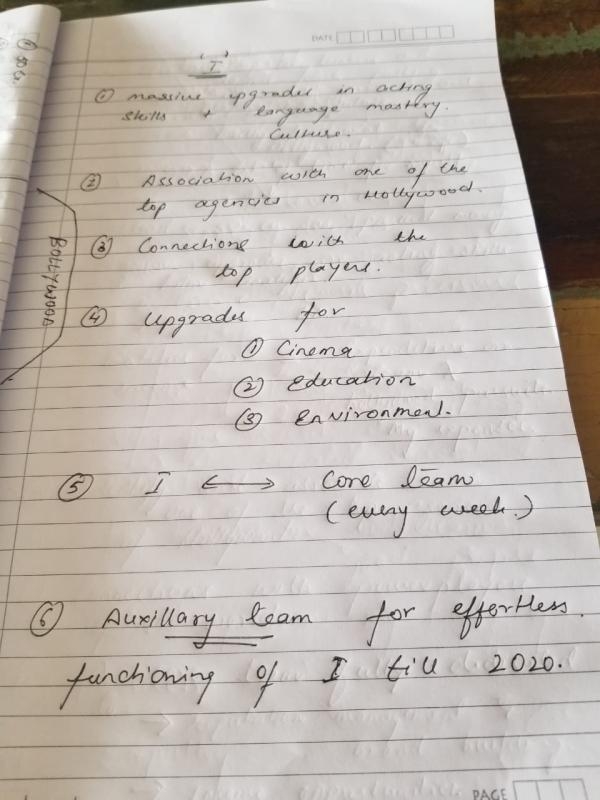 DATE
I
① massive upgrades in acting
skills + language mastery.
Culture.
② Association with one of the
top agencies in Hollywood.
③ Connections with the
top players.
BOLLYWOOD
④ upgrades for
① Cinema
② Education
③ Environment.
⑤ I ⟷ Core team
(every week.)
⑥ Auxillary team for effortless.
functioning of I till 2020.
PAGE